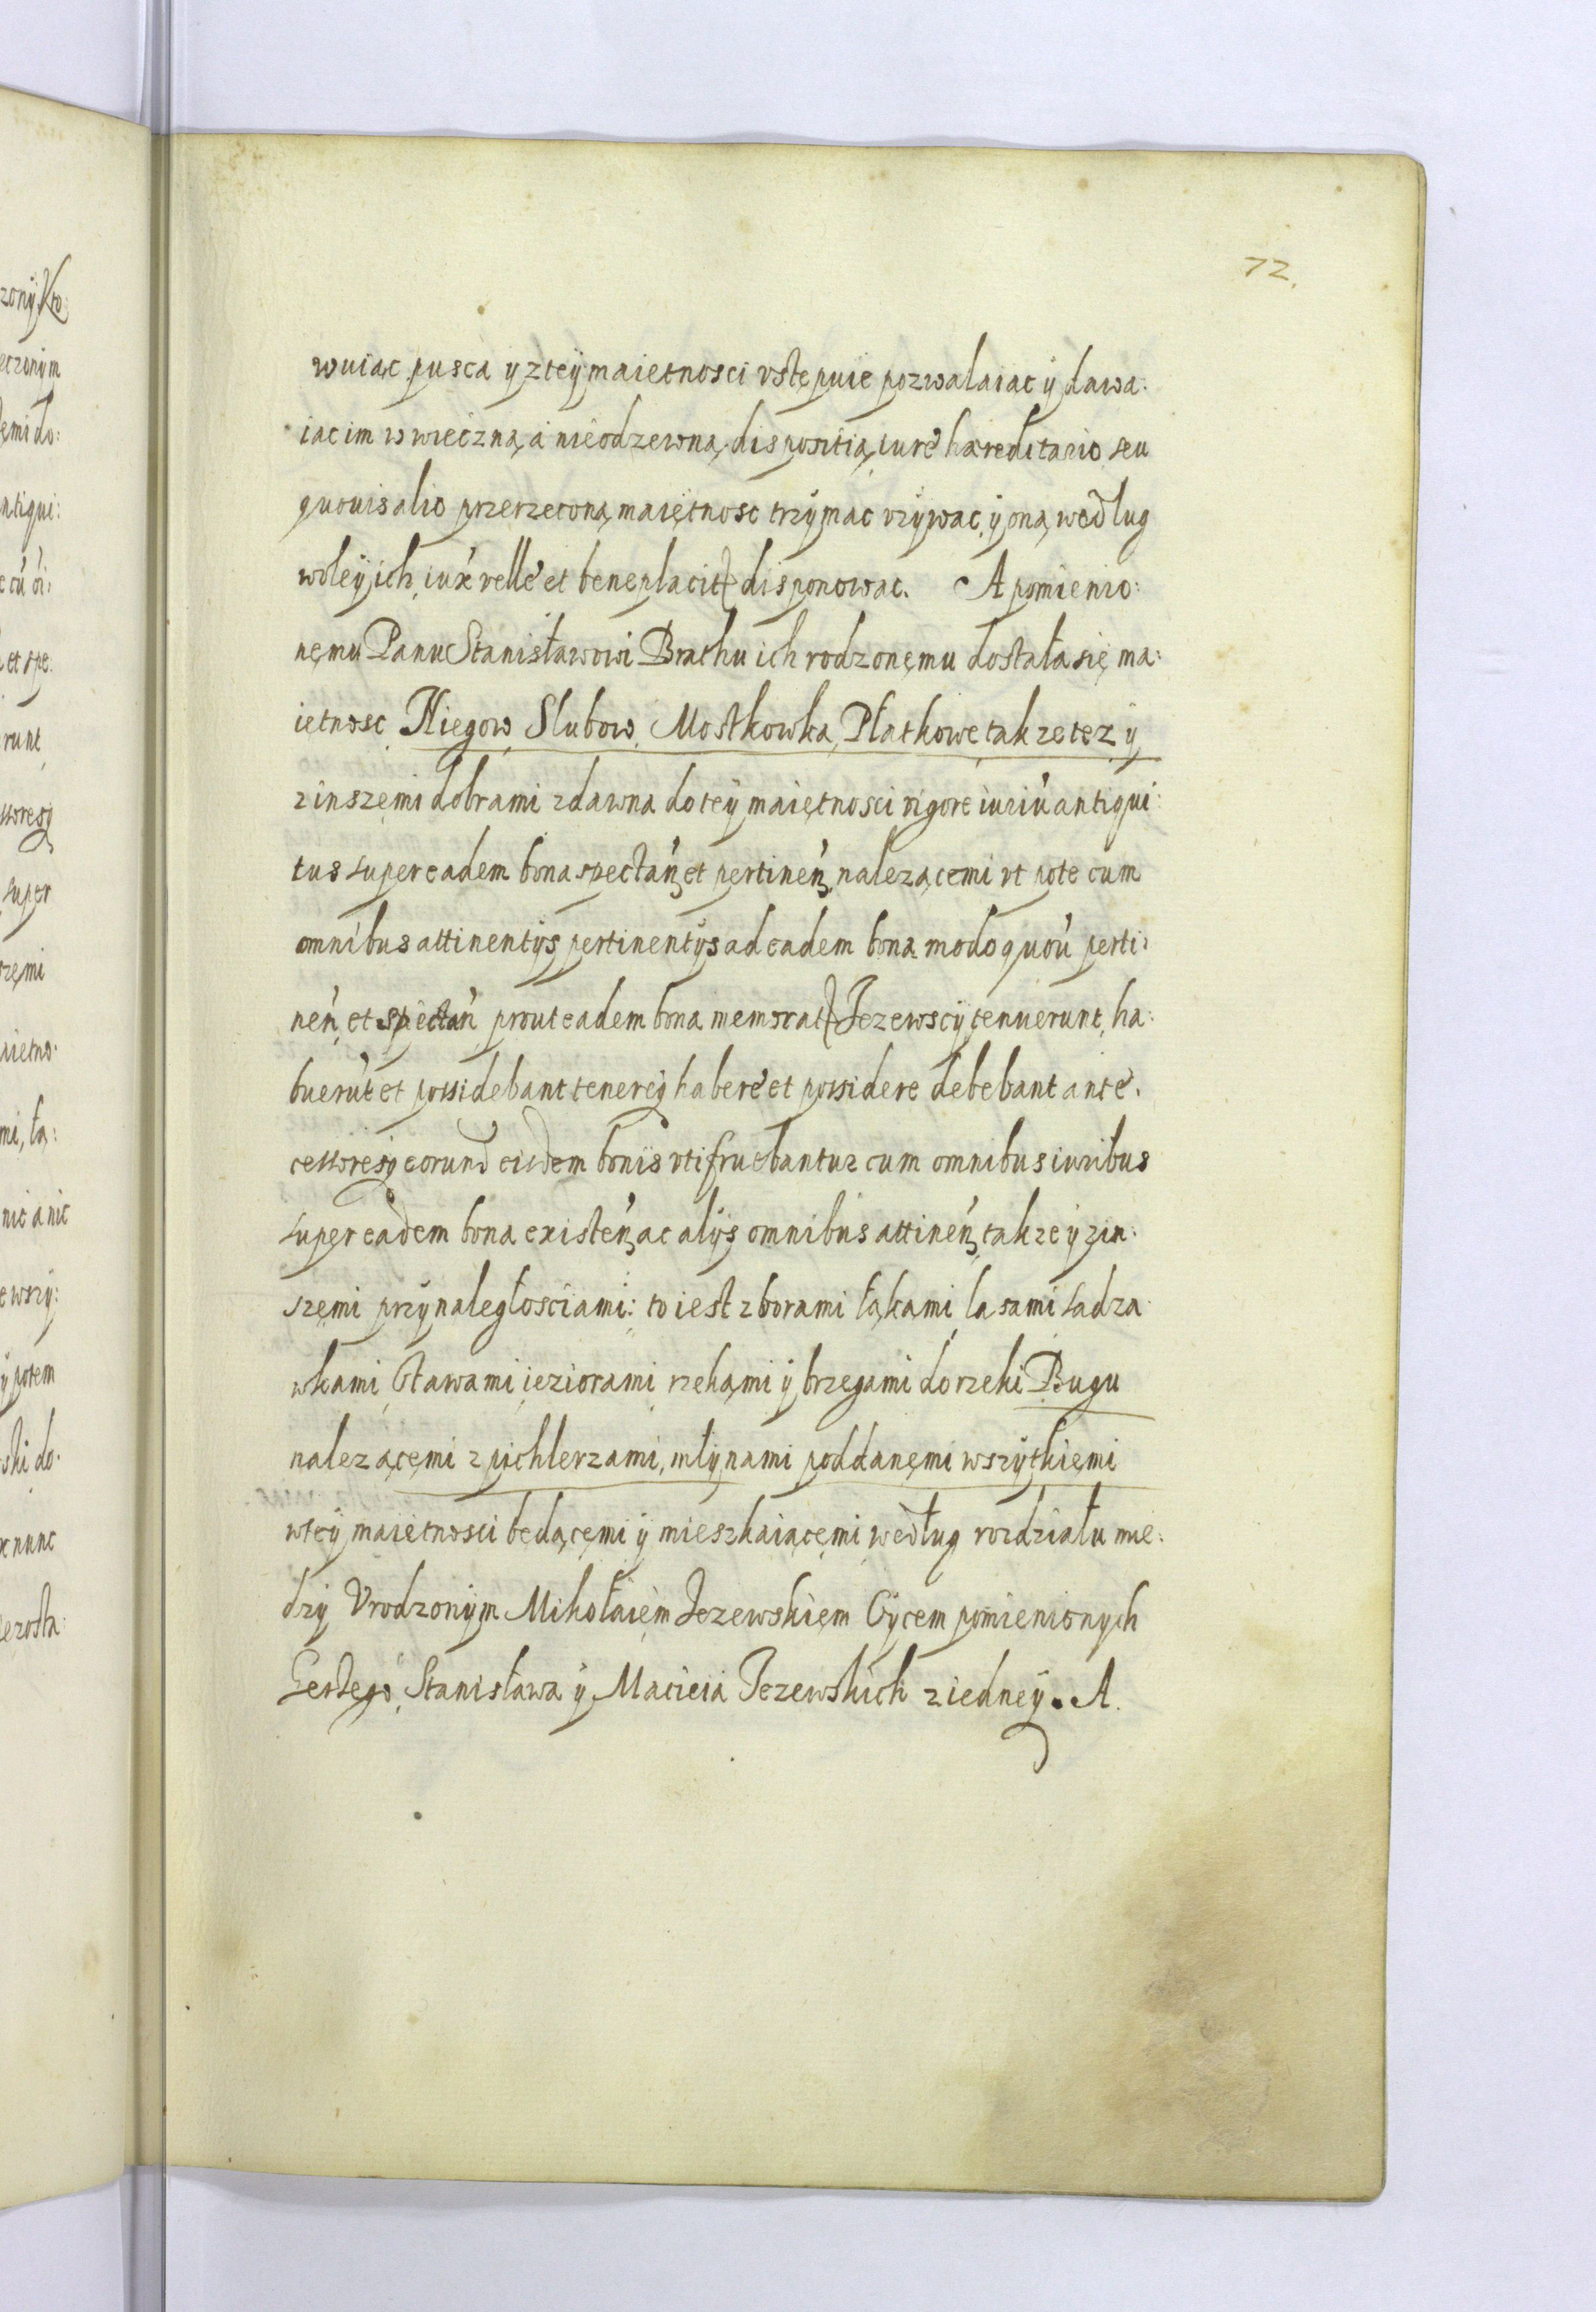 72.
wuiąc pusca y z teÿ maiętnosci vstępuie pozwalaiac ÿ dawa:
iac im w wieczną a nieodzewną dispositią iure hæreditario seu
quouis alio przerzeconą maiętnosc trzÿmac vzÿwac ÿ oną według
woleÿ ich iux velle et beneplacit disponowac. A pomienio:
nęmu Panu Stanisławowi Brathu ich rodzonęmu dostała się ma:
iętnosc Niegow, Slubow, Mostkowka, Płatkowę takze tez ÿ
z inszęmi dobrami zdawna do teÿ maiętnosci rigore iuriu antiqui:
tus super eadem bona spectan et pertinen nalezącemi vt pote cum
omnibus attinentÿs pertinentÿs ad eadem bona modo quou perti:
nen et spectan prout eadem bona memorat Jezewscÿ tenuerunt, ha:
buerut et possidebant tenereq habere et possidere debebant ante:
cessoresq eorund eisdem boniis vti fruebantur cum omnibus iuribus
super eadem bona existen ac alÿs omnibus attinen takze ÿ z in:
szęmi przÿnaległosciami: to iest z borami łąkami lasami sadza:
wkami stawami ieziorami rzekąmi ÿ brzegami do rzeki Bugu
nalezącęmi z pichlerzami, młÿnami poddanęmi wszÿtkięmi
w teÿ maiętnosci będącęmi ÿ mieszkaiącęmi według rozdziału mie:
dzÿ Vrodzonÿm Mikołaięm Jezewskięm Oÿcem pomienionÿch
Stanisława ÿ Macieia Jezewskich z iedneÿ. A
zonÿ Kto:
eczonÿm
ęmi do:
ntiqui:
et spe:
runt
ssoresq
super
szęmi
aiętno:
mi, łą:
nic a nic
e wszÿ:
ÿ potem
ski do:
ex nunc